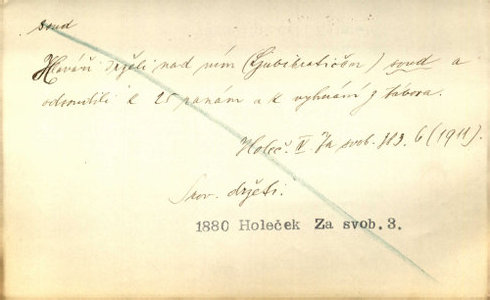 soud
Hlaváři drželi nad ním (Ljubibratićem) soud a
odsoudili k 25 ranám a k vyhnání z tábora.
Holeč. IV Za svob. 183. 6 (1911).
Srov. držeti.
1880 Holeček Za svob. 3.